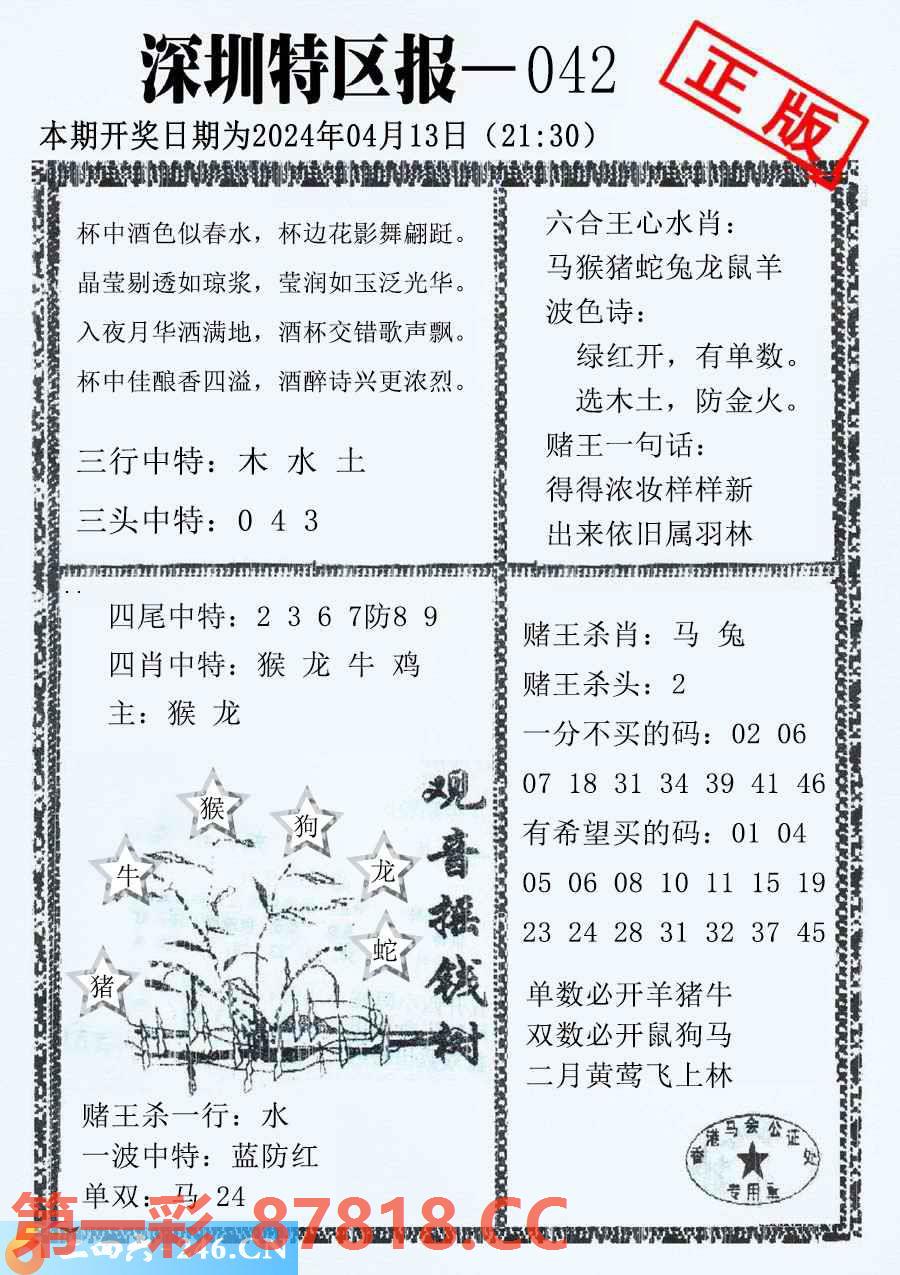 深圳特区报—042
正版
本期开奖日期为2024年04月13日（21:30）
杯中酒色似春水，杯边花影舞翩跹。
晶莹剔透如琼浆，莹润如玉泛光华。
入夜月华洒满地，酒杯交错歌声飘。
杯中佳酿香四溢，酒醉诗兴更浓烈。
三行中特：木 水 土
三头中特：0 4 3
六合王心水肖：
马猴猪蛇兔龙鼠羊
波色诗：
绿红开，有单数。
选木土，防金火。
赌王一句话：
得得浓妆样样新
出来依旧属羽林
四尾中特：2 3 6 7防8 9
四肖中特：猴 龙 牛 鸡
主：猴 龙
猴
狗
牛
龙
蛇
猪
观音摇钱树
赌王杀一行：水
一波中特：蓝防红
单双：马 24
赌王杀肖：马 兔
赌王杀头：2
一分不买的码：02 06
07 18 31 34 39 41 46
有希望买的码：01 04
05 06 08 10 11 15 19
23 24 28 31 32 37 45
单数必开羊猪牛
双数必开鼠狗马
二月黄莺飞上林
香港马会公证处
专用章
第一彩 87818.CC
246.CN